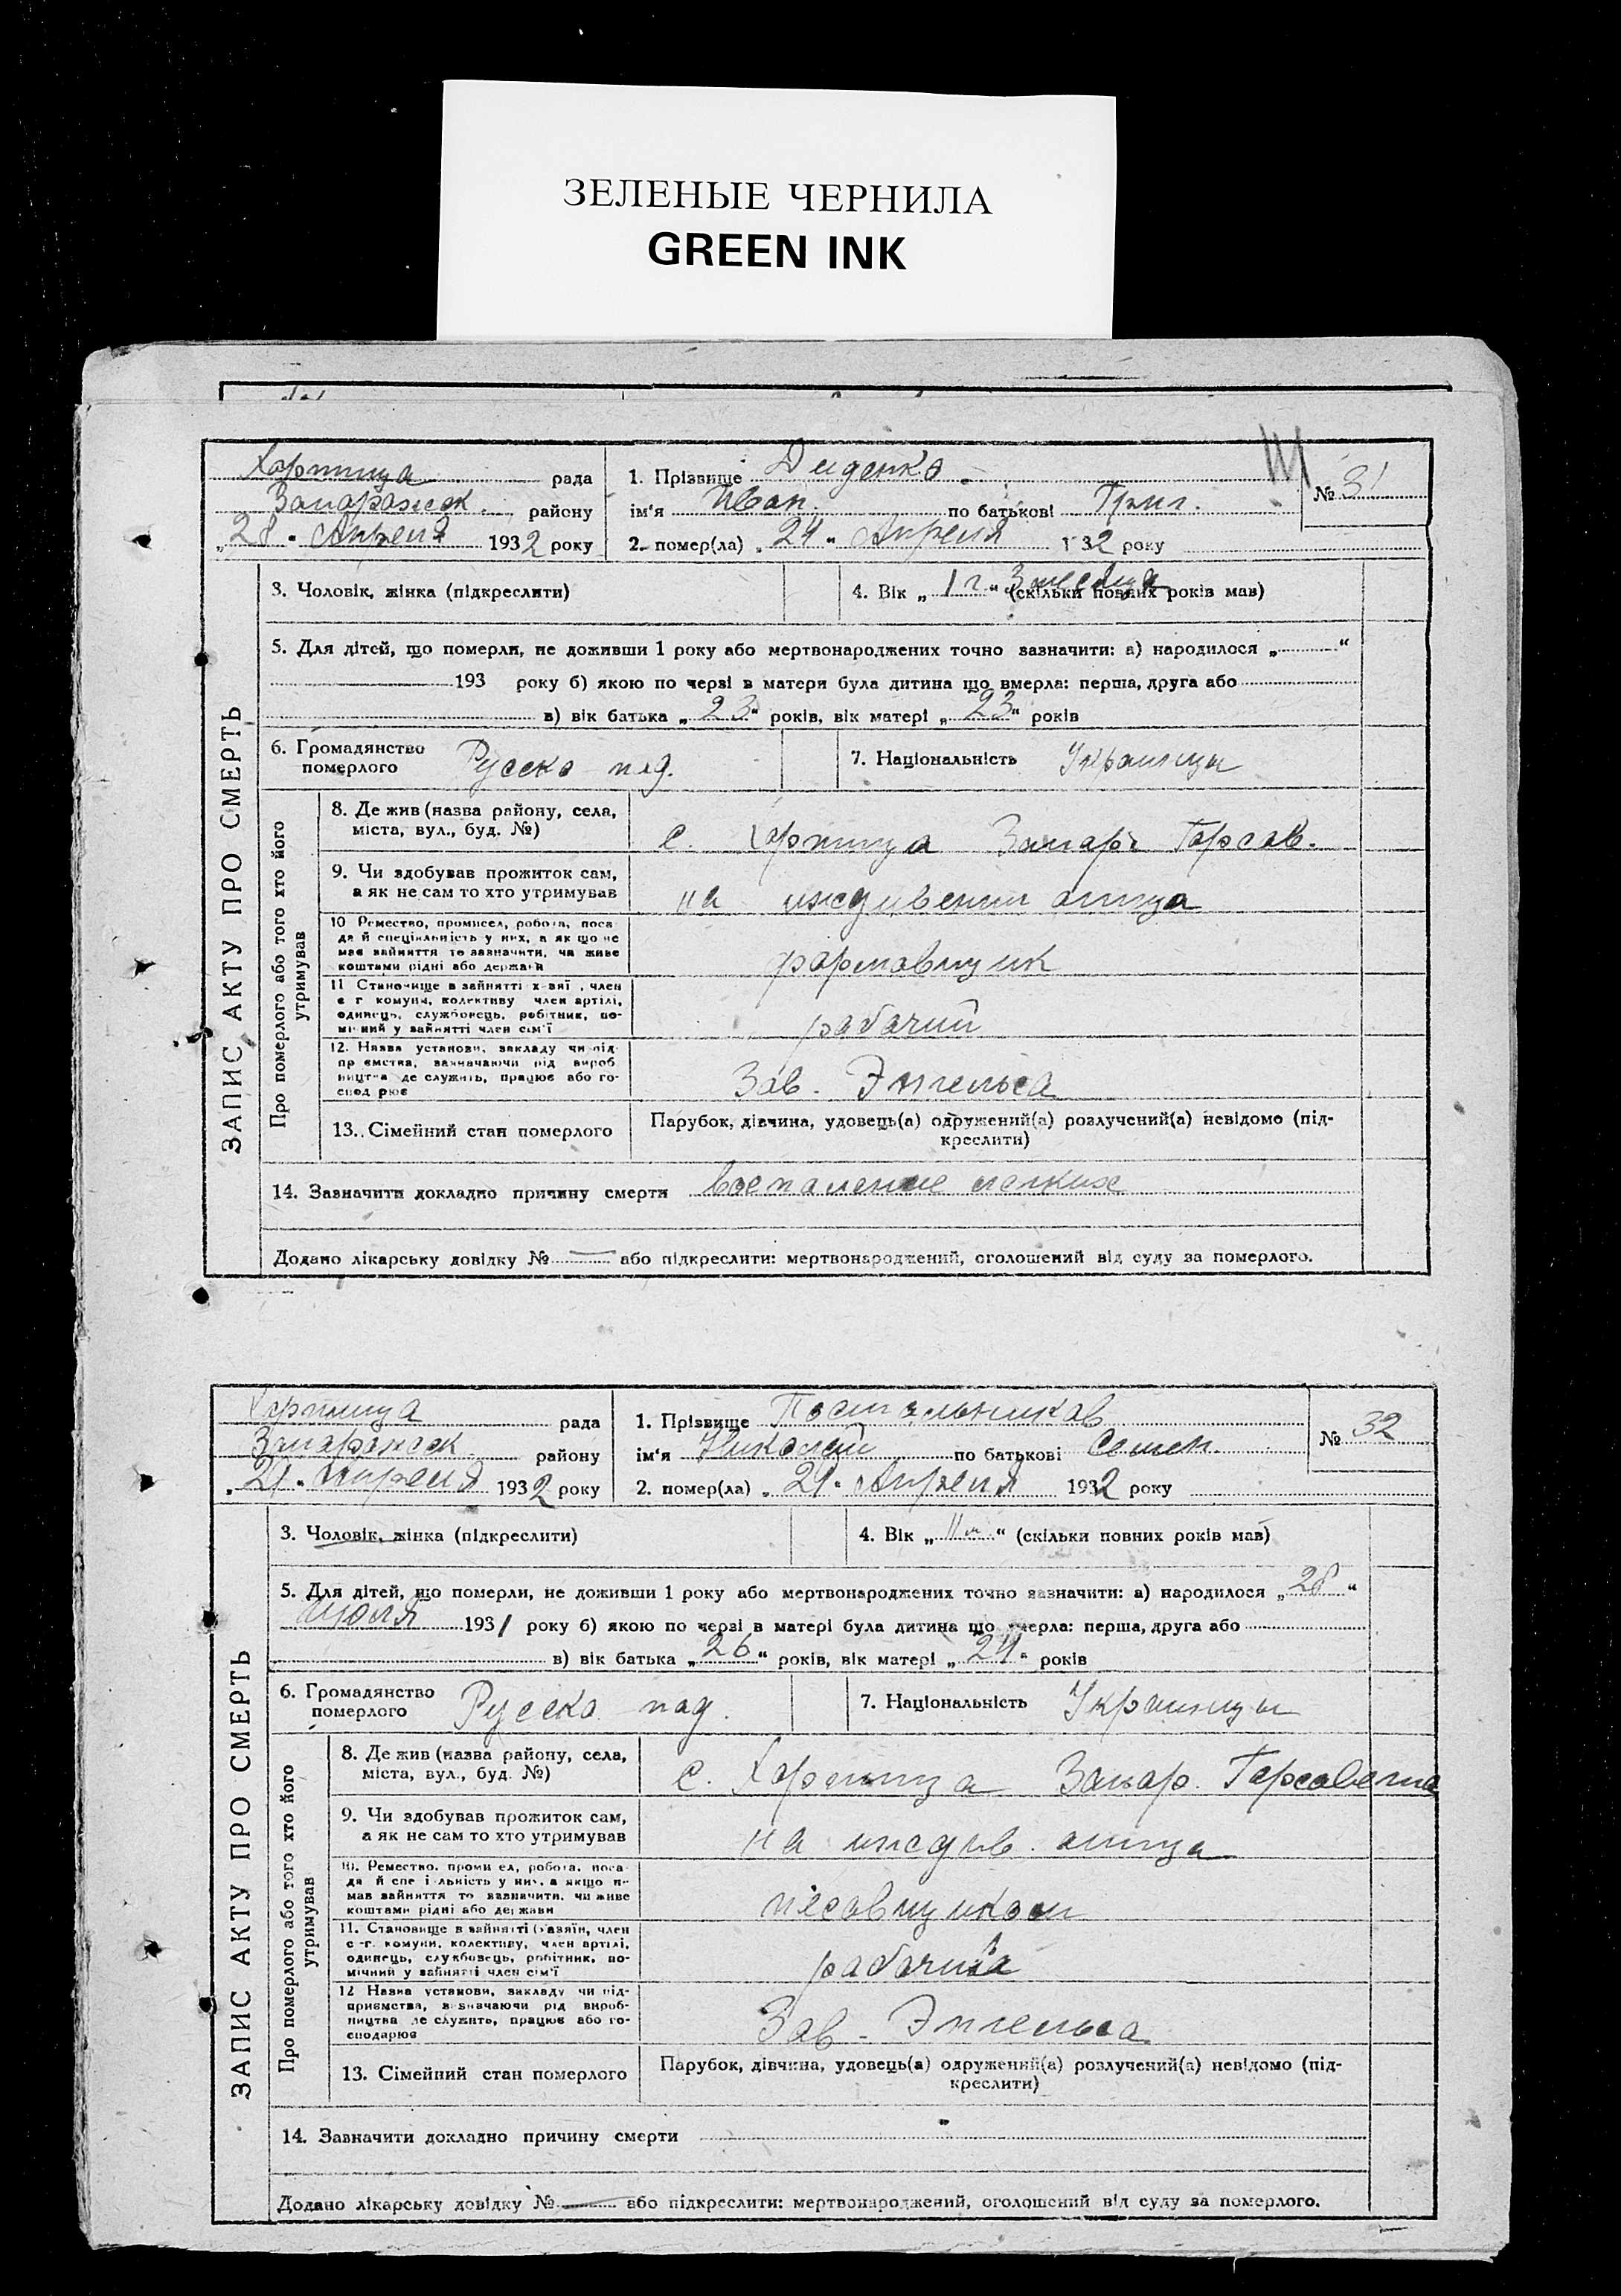 ЗЕЛЕНЫЕ ЧЕРНИЛА
GREEN INK
Хортица рада
Запарожск. району
„28“ Апреля 1932 року
1. Прізвище Диденко
ім'я Иван. по батькові Григ.
2. помер(ла) „24“ Апреля 1932 року
№ 31
3. Чоловік, жінка (підкреслити)
4. Вік „1 г.“ 3 месяца (скільки повних років мав)
5. Для дітей, що померли, не доживши 1 року або мертвонароджених точно зазначити: а) народилося „ “
193 року б) якою по черзі в матери була дитина що вмерла: перша, друга або
в) вік батька „23“ років, вік матері „23“ років
6. Громадянство
померлого Русско под.
7. Національність Украинцы
ЗАПИС АКТУ ПРО СМЕРТЬ
Про померлого або того хто його
утримував
8. Де жив (назва району, села,
міста, вул., буд. №)
с. Хортица Запар. Горсов.
9. Чи здобував прожиток сам,
а як не сам то хто утримував
на иждивении отца
10 Ремество, промисел, робота, поса
да й спеціяльність у них, а як що не
має зайняття то зазначити, чи живе
коштами рідні або держави
формовщик
11 Становище в зайнятті х-зяї , член
с г комуни, колективу член артілі,
одинець, службовець, робітник, по-
мічний у зайнятті член сім'ї
рабочий
12. Назва установи, закладу чи під-
пр ємства, зазначаючи рід вироб
ництва де служить, працює або го-
спод рює
Зав. Энгельса
13. Сімейний стан померлого
Парубок, дівчина, удовець(а) одружений(а) розлучений(а) невідомо (під-
креслити)
14. Зазначити докладно причину смерти воспаление легких
Додано лікарську довідку № — або підкреслити: мертвонароджений, оголошений від суду за померлого.
Хортица рада
Запарожск. району
„29“ Апреля 1932 року
1. Прізвище Постольников
ім'я Николай по батькові Семен.
2. помер(ла) „29“ Апреля 1932 року
№ 32
3. Чоловік, жінка (підкреслити)
4. Вік „11 м“ (скільки повних років мав)
5. Для дітей, що померли, не доживши 1 року або мертвонароджених точно зазначити: а) народилося „28“
Июля 1931 року б) якою по черзі в матері була дитина що вмерла: перша, друга або
в) вік батька „26“ років, вік матері „24“ років
6. Громадянство
померлого Русско под.
7. Національність Украинцы
ЗАПИС АКТУ ПРО СМЕРТЬ
Про померлого або того хто його
утримував
8. Де жив (назва району, села,
міста, вул., буд. №)
с. Хортица Запар. Горсовета
9. Чи здобував прожиток сам,
а як не сам то хто утримував
на иждив. отца
10. Ремество, проми ел, робота, поса
да й спе і льність у них, а якщо н-
має зайняття то зазначити, чи живе
коштами рідні або держави
11. Становище в зайнятті (хазяїн, член
с-г. комуни, колективу, член артілі,
одинець, службовець, робітник, по-
мічний у зайнятті член сім'ї
12 Назва установи, закладу чи під-
приємства, зазначаючи рід вироб-
ництва де служить, працює або го-
сподарює
Зав. Энгельса
13. Сімейний стан померлого
Парубок, дівчина, удовець(а) одружений(а) розлучений(а) невідомо (під-
креслити)
14. Зазначити докладно причину смерти
Додано лікарську довідку № — або підкреслити: мертвонароджений, оголошений від суду за померлого.